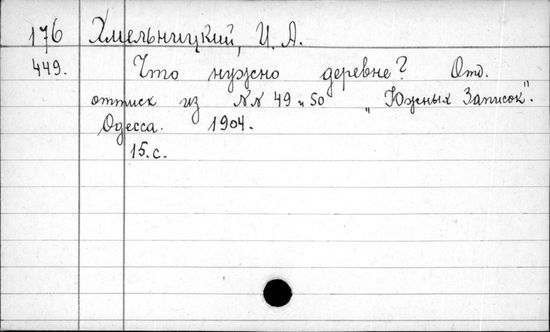 176 Хмельницкий, И. А.
449. Что нужно деревне? Отд.
оттиск из NN 49 и 50 „Южных Записок".
Одесса. 1904.
15.с.